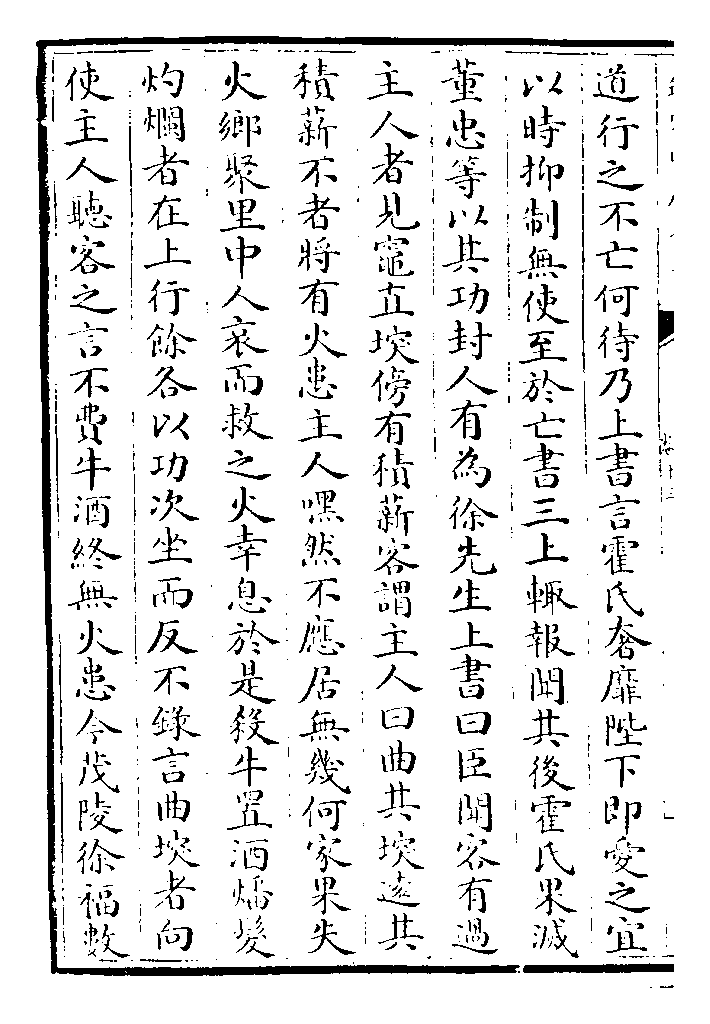 道行之不亡何待乃上書言霍氏奢靡陛下即愛之宜
以時抑制無使至於亡書三上輙報聞其後霍氏果滅
董忠等以其功封人有為徐先生上書曰臣聞客有過
主人者見竈直堗傍有積薪客謂主人曰曲其堗逺其
積薪不者將有火患主人嘿然不應居無幾何家果失
火鄉聚里中人哀而救之火幸息於是殺牛置酒燔髮
灼爛者在上行餘各以功次坐而反不錄言曲堗者向
使主人聽客之言不費牛酒終無火患今茂陵徐福數